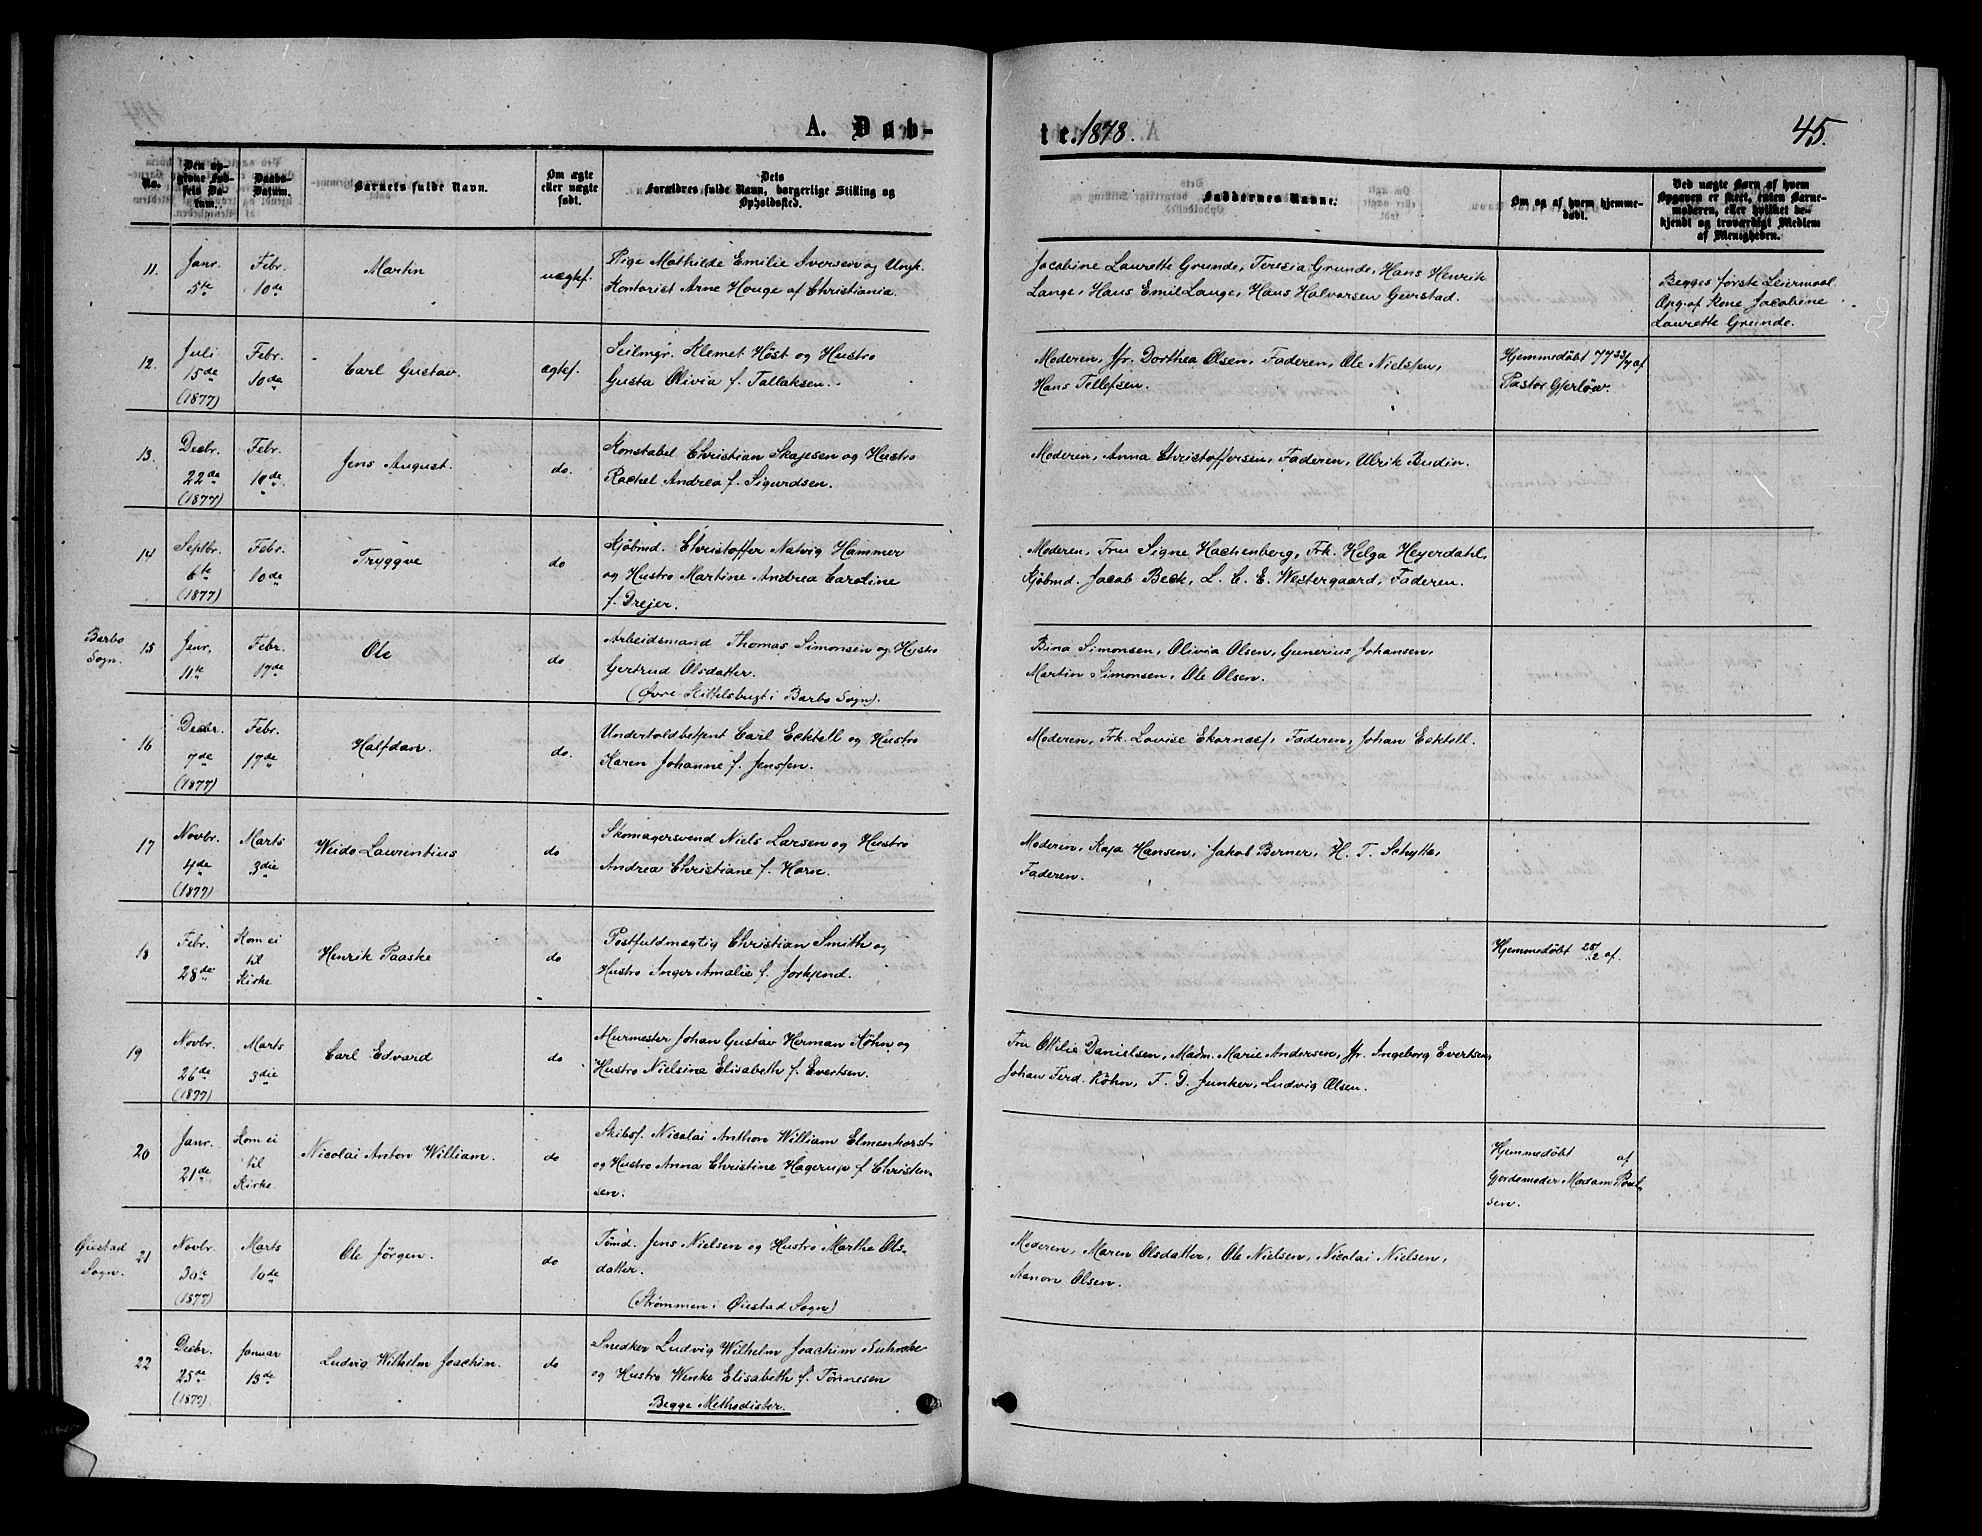 A. Døb-
No.
Den op-
givne Fød-
sels Da-
tum.
Daabs-
Datum.
Barnets fulde Navn.
Om ægte
eller uægte
født.
Dets
Forældres fulde Navn, borgerlige Stilling og
Opholdssted.
11.
Janr.
5te
Febr.
10de
Martin
uægtef.
Pige Mathilde Emilie Iversen og Ungk.
Kontorist Arne Houge af Christiania.
12.
Juli
15de
(1877)
Febr.
10de
Carl Gustav.
ægtef.
Seilmgr. Klemet Höst og Hustro
Gusta Olivia f. Tallaksen.
13.
Decbr.
22de
(1877)
Febr.
10de
Jens August.
do.
Konstabel Christian Skajesen og Hustro
Rachel Andrea f. Sigurdsen.
14
Septbr.
6te
(1877)
Febr.
10de
Tryggve
do
Kjöbmd. Christoffer Natvig Hammer
og Hustro Martine Andrea Caroline
f. Drejer.
Barbo
Sogn.
15
Janr.
11te
Febr.
17de
Ole
do
Arbeidsmand Thomas Simonsen og Hustro
Gertrud Olsdatter.
(Øvre Kittelsbugt i Barbo Sogn).
16
Decbr.
7de
(1877)
Febr.
17de
Halfdan.
do.
Undertoldbetjent Carl Ecktell og Hustro
Karen Johanne f. Jenssen.
17
Novbr.
4de
(1877)
Marts
3die
Weido Laurentius
do
Skomagersvend Niels Larsen og Hustro
Andrea Christiane f. Horn.
18
Febr.
28de
Kom ei
til
Kirke
Henrik Paaske
do
Postfuldmægtig Christian Smith og
Hustro Inger Amalie f. Jorkjend.
19
Novbr.
26de
(1877)
Marts
3die
Carl Edvard
do
Murmester Johan Gustav Herman Köhn og
Hustro Nielsine Elisabeth f. Evertsen.
20
Janr.
21de
Kom ei
til
Kirke
Nicolai Anton William.
do
Skibsf. Nicolai Anthon William Elmenhorst
og Hustro Anna Christine Hagerup f. Christen-
sen.
Øiestad
Sogn.
21
Novbr.
30te
(1877)
Marts
10de
Ole Jörgen.
do
Tömd. Jens Nielsen og Hustro Marthe Ols-
datter.
(Strømmen i Øiestad Sogn)
22
Decbr.
25de
(1877)
Januar
13de
Ludvig Wilhelm Joachim.
do
Snedker Ludvig Wilhelm Joachim
og Hustro Wenke Elisabeth f. Tönnesen
Begge Methodister.
te. 1878.
45.
Faddernes Navne.
Om og af hvem hjemme-
døbt.
Ved uægte Børn af hvem
Opgaven er skeet, enten Barne-
moderen, eller hvilket be-
kjendt og troværdigt Medlem
af Menigheden.
Jacobine Laurette Grunde, Teresia Grunde, Hans Henrik
Lange, Hans Emil Lange, Hans Halvorsen Gjerstad.
Begges förste Leiermaal.
Opg. af Kone Jacobine
Laurette Grunde.
Moderen, Jfr. Dorthea Olsen, Faderen, Ole Nielsen,
Hans Tellefsen.
Hjemmedöbt af
Pastor Gjerlöw.
Moderen, Anna Christoffersen, Faderen, Ulrik Budin.
Moderen, Fru Signe Hachenberg, Frk. Helga Heyerdahl,
Kjöbmd. Jacob Beck, L. C. E. Westergaard, Faderen.
Bina Simonsen, Olivia Olsen, Gunerius Johansen,
Martin Simonsen, Ole Olsen.
Moderen, Frk. Lovise Ekornæs, Faderen, Johan Ecktell.
Moderen, Kaja Hansen, Jakob Berner, H. T. Schytte,
Faderen.
Hjemmedöbt 28/2 af.
Fru Otilie Danielsen, Madm. Marie Andersen, Jfr. Ingeborg Evertsen,
Johan Ferd. Köhn, F. D. Junker, Ludvig Olsen.
Hjemmedöbt af
Gjordemoder Madam Poul-
sen.
Moderen, Maren Olsdatter, Ole Nielsen, Nicolai Nielsen,
Aanon Olsen.